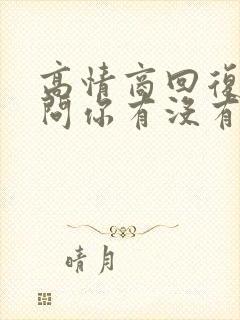 高情商回復
问你有没有
晴月